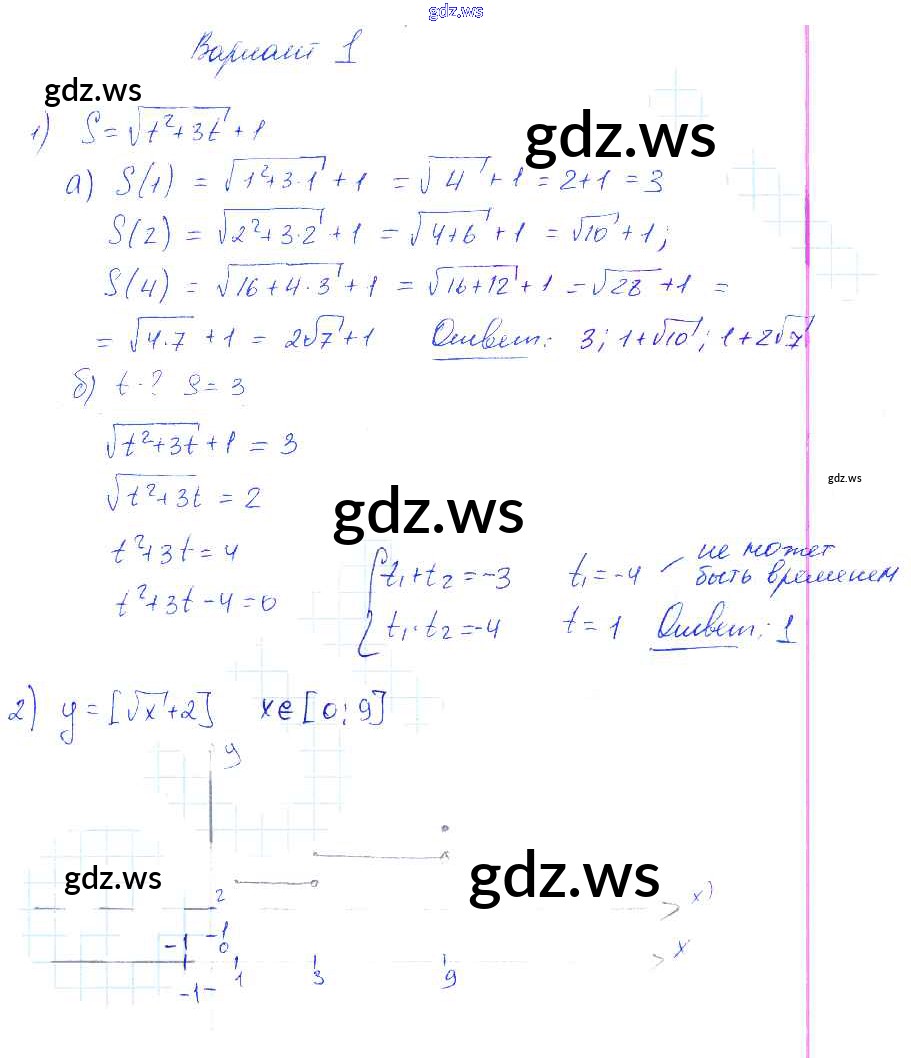 gdz.ws
Вариант 1
gdz.ws
gdz.ws
1) S = √(t²+3t) + 1
а) S(1) = √(1²+3·1) + 1 = √4 + 1 = 2+1 = 3
S(2) = √(2²+3·2) + 1 = √(4+6) + 1 = √10 + 1;
S(4) = √(16+4·3) + 1 = √(16+12) + 1 = √28 + 1 =
= √(4·7) + 1 = 2√7 + 1 Ответ: 3; 1+√10; 1+2√7
б) t-? S = 3
√(t²+3t) + 1 = 3
gdz.ws
√(t²+3t) = 2
gdz.ws
t²+3t = 4
t²+3t-4=0
{ t₁+t₂=-3 t₁=-4 не может быть временем
t₁·t₂=-4 t=1 Ответ: 1
2) y=[√x+2] x∈[0;9]
y
gdz.ws
gdz.ws
2 x)
-1 -1
0 x
1 3 9
-1